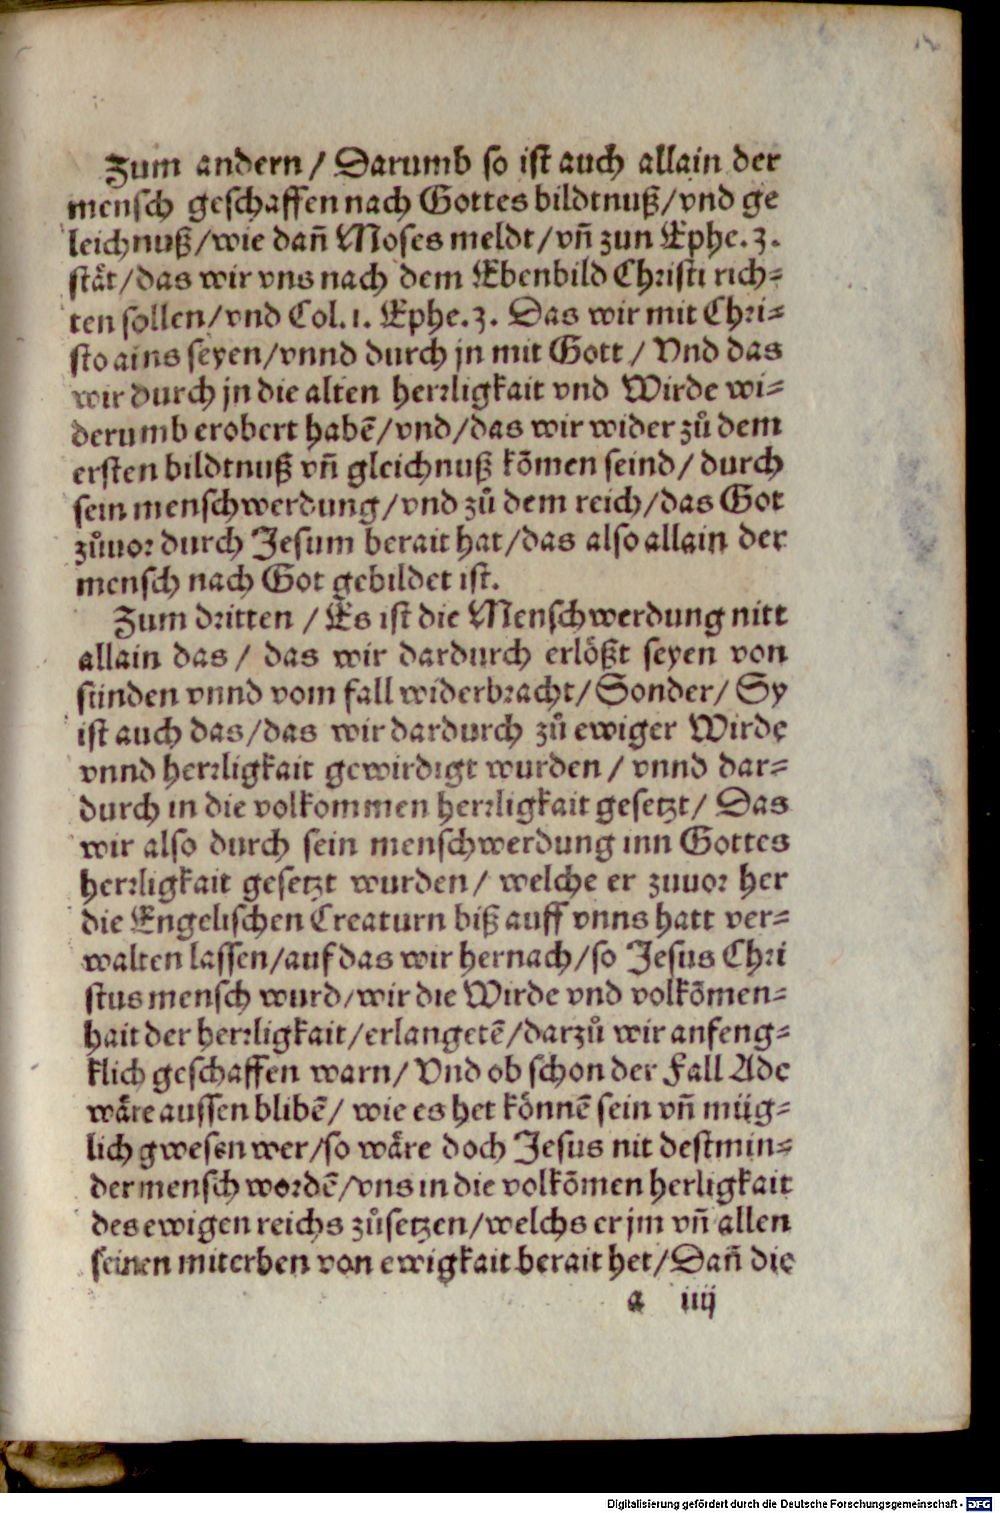 Zum andern / Darumb so ist auch allain der
mensch geschaffen nach Gottes bildtnuß/vnd ge
leichnuß/wie dañ Moses meldt/vñ zun Ephe.3.
stät/das wir vns nach dem Ebenbild Christi rich-
ten sollen/vnd Col.1. Ephe.3. Das wir mit Chri-
sto ains seyen/vnnd durch jn mit Gott / Vnd das
wir durch jn die alten herrligkait vnd Wirde wi-
derumb erobert habē/vnd/das wir wider zů dem
ersten bildtnuß vñ gleichnuß kōmen seind/ durch
sein menschwerdung/vnd zů dem reich/das Got
zůuor durch Jesum berait hat/das also allain der
mensch nach Got gebildet ist.
Zum dritten / Es ist die Menschwerdung nitt
allain das / das wir dardurch erlößt seyen von
sünden vnnd vom fall widerbracht/Sonder/ Sy
ist auch das/das wir dardurch zů ewiger Wirde
vnnd herrligkait gewirdigt wurden / vnnd dar-
durch in die volkommen herrligkait gesetzt/ Das
wir also durch sein menschwerdung inn Gottes
herrligkait gesetzt wurden/ welche er zuuor her
die Engelischen Creaturn biß auff vnns hatt ver-
walten lassen/auf das wir hernach/so Jesus Chri
stus mensch wurd/wir die Wirde vnd volkōmen-
hait der herrligkait/erlangetē/darzů wir anfeng-
klich geschaffen warn/ Vnd ob schon der Fall Ade
wäre aussen blibē/ wie es het könnē sein vñ müg-
lich gwesen wer/so wäre doch Jesus nit destmin-
der mensch wordē/vns in die volkōmen herligkait
des ewigen reichs zůsetzen/welchs er jm vñ allen
seinen miterben von ewigkait berait het/Dañ die
a iiij
Digitalisierung gefördert durch die Deutsche Forschungsgemeinschaft - DFG